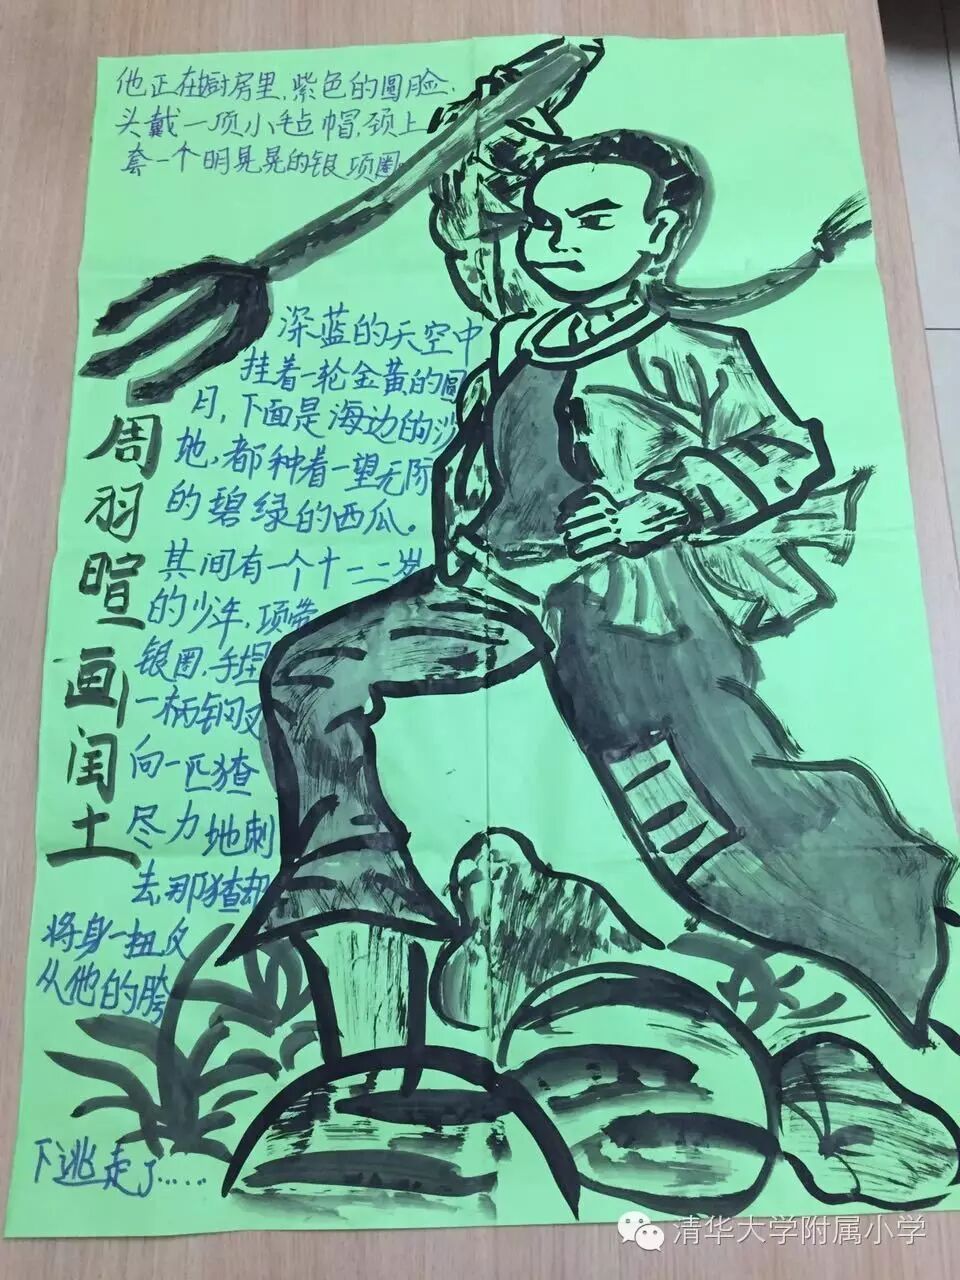 他正在厨房里,紫色的圆脸,
头戴一顶小毡帽,颈上
套一个明晃晃的银项圈
深蓝的天空中
挂着一轮金黄的圆
月,下面是海边的沙
地,都种着一望无际
的碧绿的西瓜。
其间有一个十一二岁
的少年,项带
银圈,手捏
一柄钢叉
向一匹猹
尽力地刺
去,那猹却
将身一扭,反
从他的胯
下逃走了……
周羽暄画闰土
清华大学附属小学